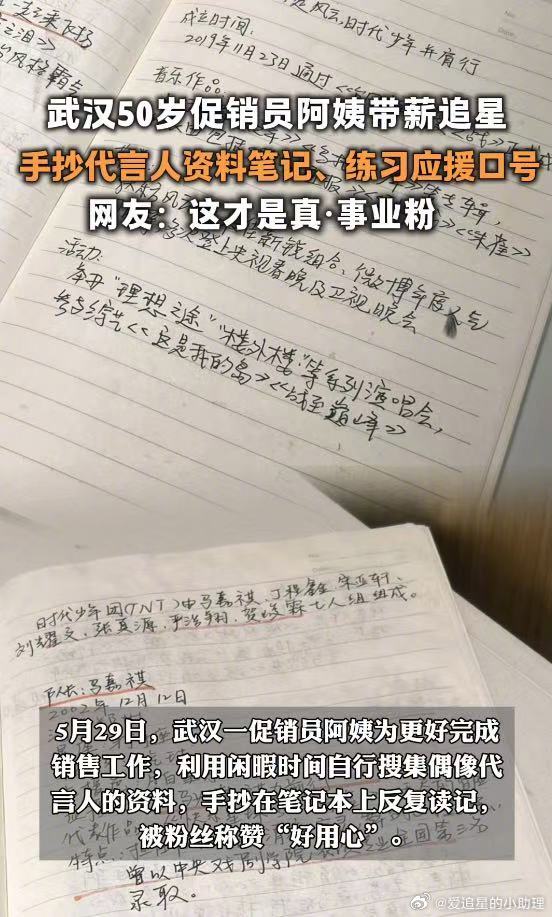 风云,时代少年并肩行
成立时间:
2019年11月23日通过<<
音乐作品:
武汉50岁促销员阿姨带薪追星
手抄代言人资料笔记、练习应援口号
网友:这才是真·事业粉
<<朱雀>>
新锐组合、微博年度人气
登上央视春晚及卫视晚会
活动:
举办"理想之途""楼外楼"等系列演唱会,
参与综艺<<这是我的岛>><<战至巅峰>>
时代少年团(TNT)由马嘉祺、丁程鑫、宋亚轩、
刘耀文、张真源、严浩翔、贺峻霖七人组组成。
队长:马嘉祺
2002年12月12日
5月29日,武汉一促销员阿姨为更好完成
销售工作,利用闲暇时间自行搜集偶像代
言人的资料,手抄在笔记本上反复读记,
被粉丝称赞“好用心”。
代表作品
特点:
曾以中央戏剧学院
全国第三名
录取。
@爱追星的小助理